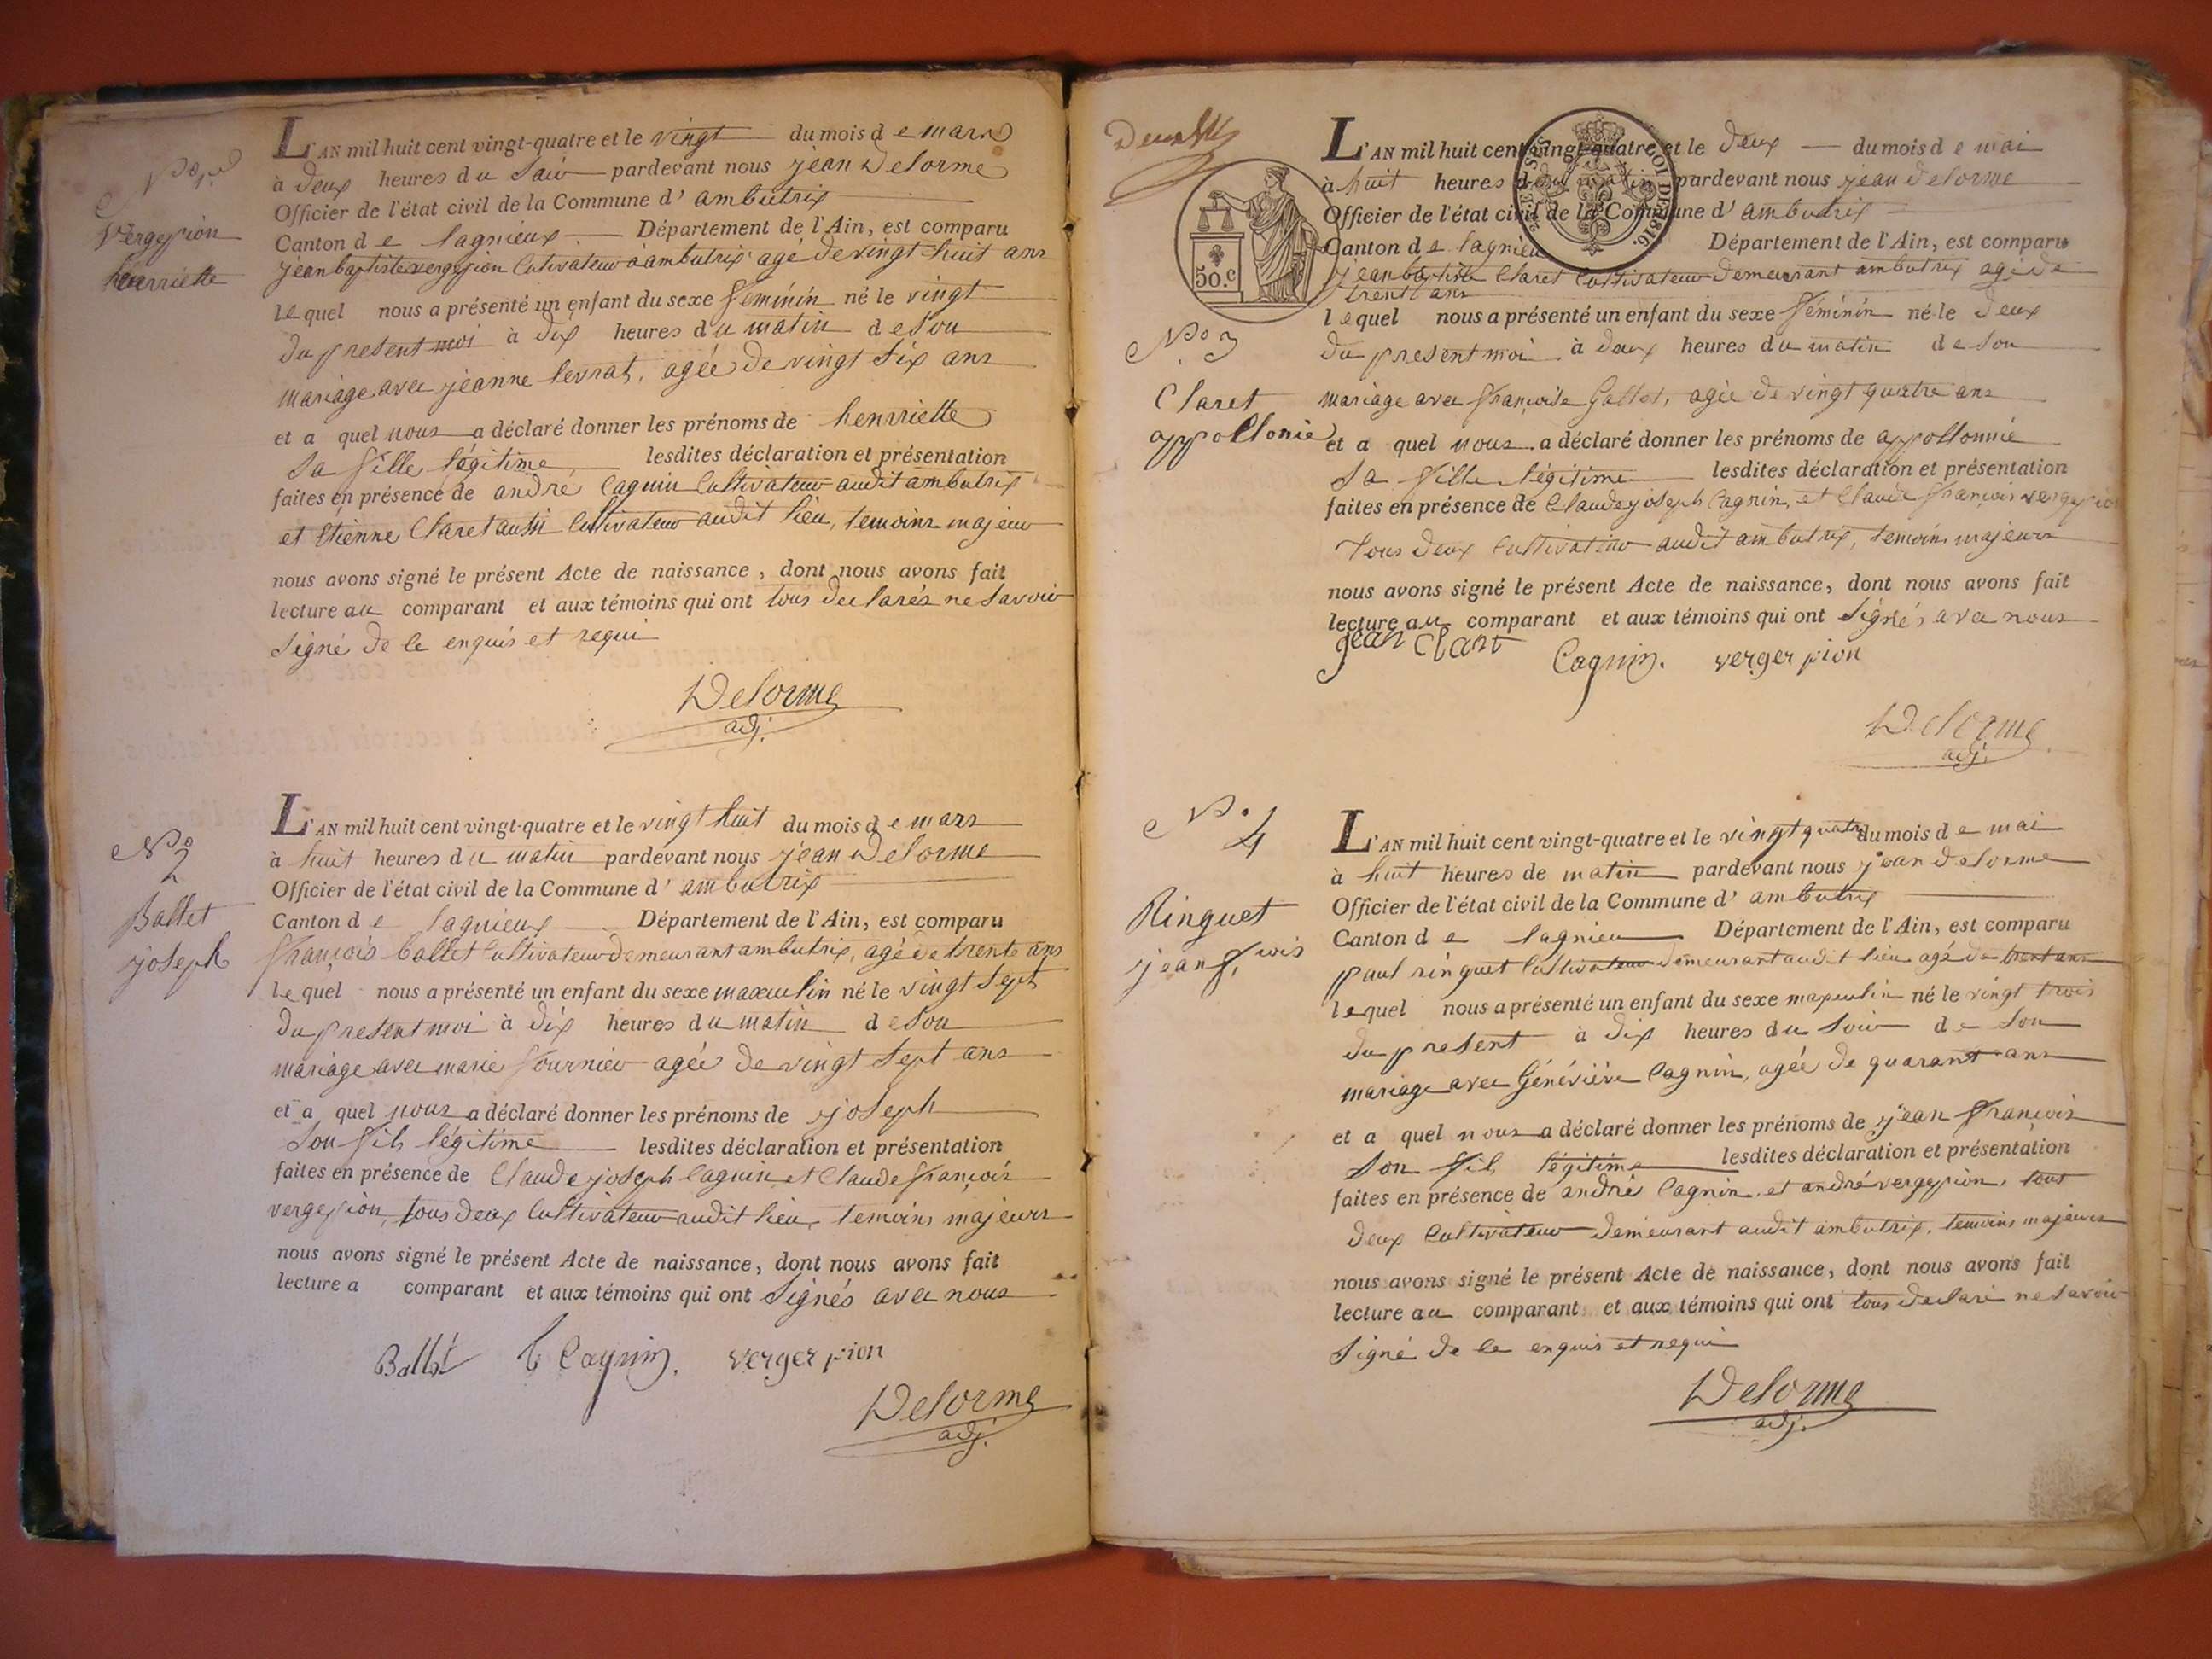 Vergepion
henriette
L'AN mil huit cent vingt-quatre et le vingt du mois de mars
à deux heures du Soir pardevant nous jean Delorme
Officier de l'état civil de la Commune d' ambutrix
Canton de lagnieux Département de l'Ain, est comparu
jean baptiste vergepion Cutivateur à ambutrix agé de vingt huit ans
lequel nous a présenté un enfant du sexe feminin né le vingt
du present moi à dix heures du matin de son
mariage avec jeanne levrat, agée de vingt six ans
et a quel nous a déclaré donner les prénoms de henriette
Sa fille légitime lesdites déclaration et présentation
faites en présence de andré Cagnin Cultivateur audit ambutrix
et Etienne Claret aussi Cultivateur audit lieu, temoins majeur
nous avons signé le présent Acte de naissance, dont nous avons fait
lecture au comparant et aux témoins qui ont tous declarés ne Savoir
Signé de ce enquis et requi
Delorme
adj.
No
2
Ballet
joseph
L'AN mil huit cent vingt-quatre et le vingt huit du mois de mars
à huit heures du matin pardevant nous jean Delorme
Officier de l'état civil de la Commune d' ambutrix
Canton de lagnieux Département de l'Ain, est comparu
françois ballet Cultivateur demeurant ambutrix, agé de trente ans
lequel nous a présenté un enfant du sexe masculin né le vingt Sept
du present moi à dix heures du matin de son
mariage avec marie fournier agée de vingt Sept ans
et a quel nous a déclaré donner les prénoms de joseph
Son fils légitime lesdites déclaration et présentation
faites en présence de Claude joseph Cagnin et Claude françois
vergepion, tous deux Cultivateur audit lieu, temoins majeurs
nous avons signé le présent Acte de naissance, dont nous avons fait
lecture a comparant et aux témoins qui ont Signés avec nous
Ballet Cagnin. vergerpion
Delorme
adj.
50.c
LOI DE 1816.
No 3
Claret
appollonie
L'AN mil huit cent vingt-quatre et le deux du mois de mai
à huit heures du matin pardevant nous jean delorme
Officier de l'état civil de la Commune d' ambutrix
Canton de lagnieu Département de l'Ain, est comparu
jean baptiste Claret Cultivateur demeurant ambutrix agé de
trent ans
lequel nous a présenté un enfant du sexe féminin né le deux
du present moi à deux heures du matin de son
mariage avec françoise Gallet, agée de vingt quatre ans
et a quel nous a déclaré donner les prénoms de appollonnie
Sa fille légitime lesdites déclaration et présentation
faites en présence de Claude joseph Cagnin, et Claude françois vergepion
Tous deux Cultivateur audit ambutrix, temoins majeurs
nous avons signé le présent Acte de naissance, dont nous avons fait
lecture au comparant et aux témoins qui ont Signés avec nous
jean Clart Cagnin. vergerpion
Delorme
adj.
No.
4
Ringuet
jean f.çois
L'AN mil huit cent vingt-quatre et le vingt quatre du mois de mai
à huit heures de matin pardevant nous jean delorme
Officier de l'état civil de la Commune d' ambutrix
Canton de lagnieu Département de l'Ain, est comparu
paul ringuet Cultivateur demeurant audit lieu agé de trent ans
lequel nous a présenté un enfant du sexe masculin né le vingt trois
du present à dix heures du Soir de Son
mariage avec Généviève Cagnin, agée de quarant ans
et a quel nous a déclaré donner les prénoms de jean françois
Son fils légitime lesdites déclaration et présentation
faites en présence de andré Cagnin, et andré vergepion, tous
deux Cultivateur demeurant audit ambutrix, temoins majeurs
nous avons signé le présent Acte de naissance, dont nous avons fait
lecture au comparant et aux témoins qui ont tous declaré ne Savoir
Signé de ce enquis et requi
Delorme
adj.